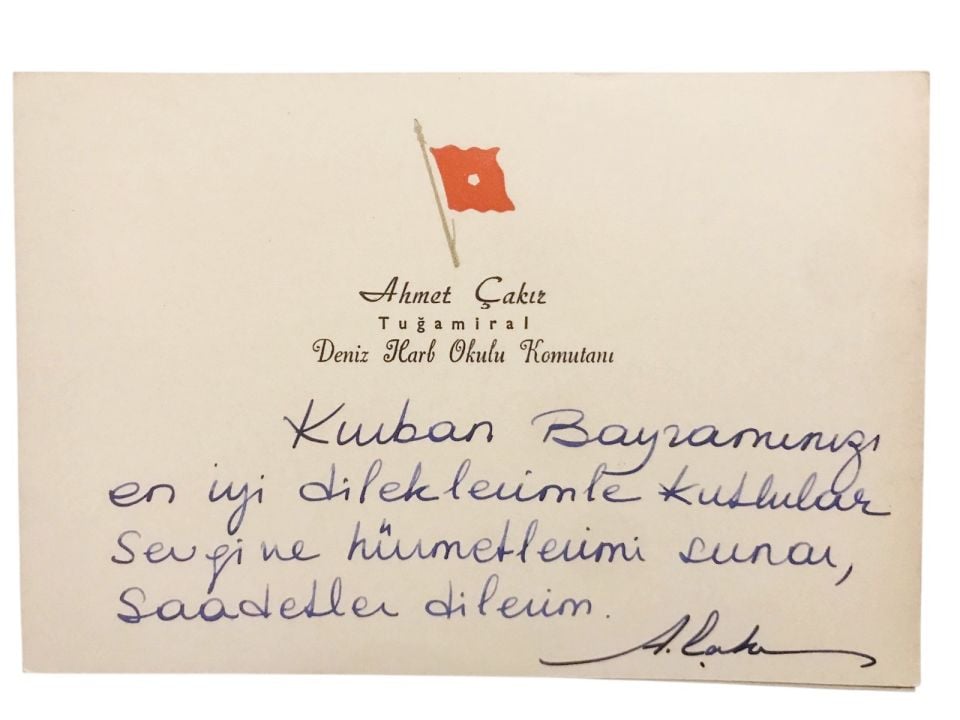 Ahmet Çakır
Tuğamiral
Deniz Harb Okulu Komutanı
Kurban Bayramınızı
en iyi dileklerimle kutlular
Sevgi ve hürmetlerimi sunar,
Saadetler dilerim.
A. Çakır